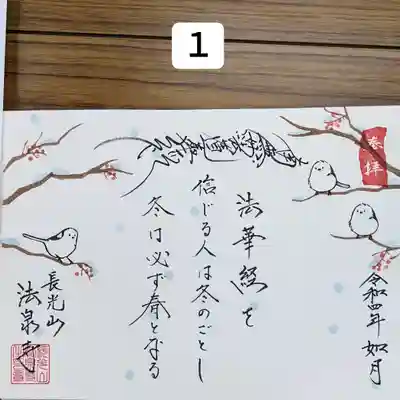 1
奉拝
南無妙法蓮華経
法華経を
信じる人は冬のごとし
冬は必ず春となる
令和四年 如月
長光山
法泉寺